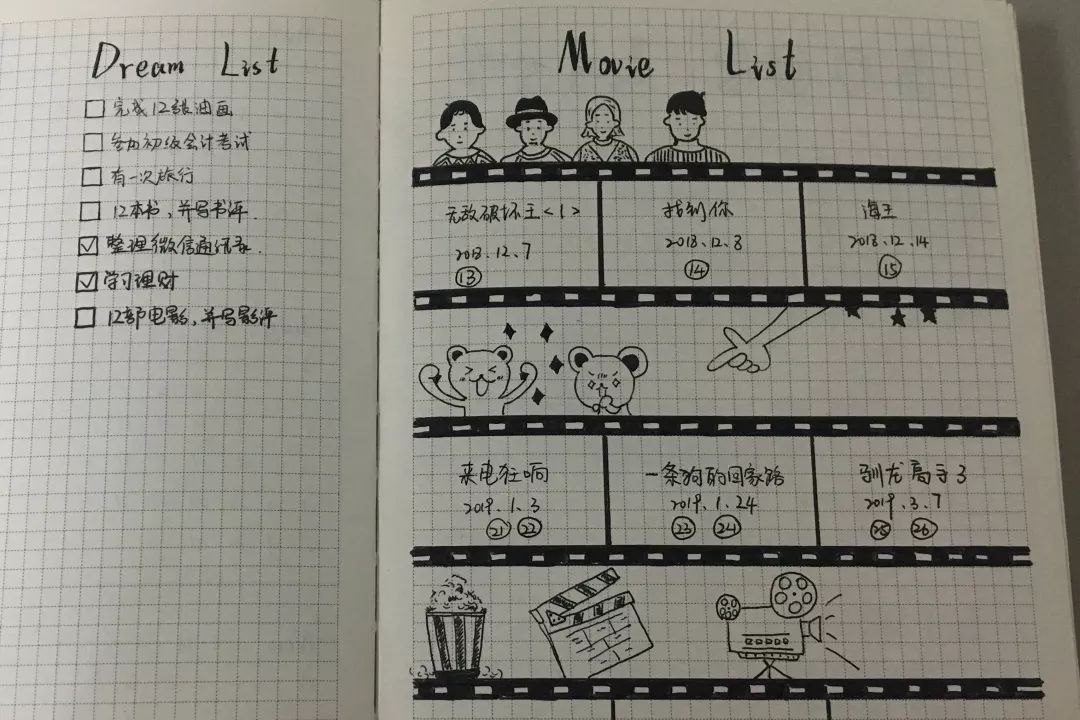 Dream List
完成12张油画
参加初级会计考试
有一次旅行
12本书，并写书评.
整理微信通讯录.
学习理财
12部电影，并写影评
Movie List
无敌破坏王<1>
2018.12.7
⑬
找到你
2018.12.8
⑭
海王
2018.12.14
⑮
来电狂响
2019.1.3
㉑ ㉒
一条狗的回家路
2019.1.24
㉓ ㉔
驯龙高手3
2019.3.7
㉕ ㉖